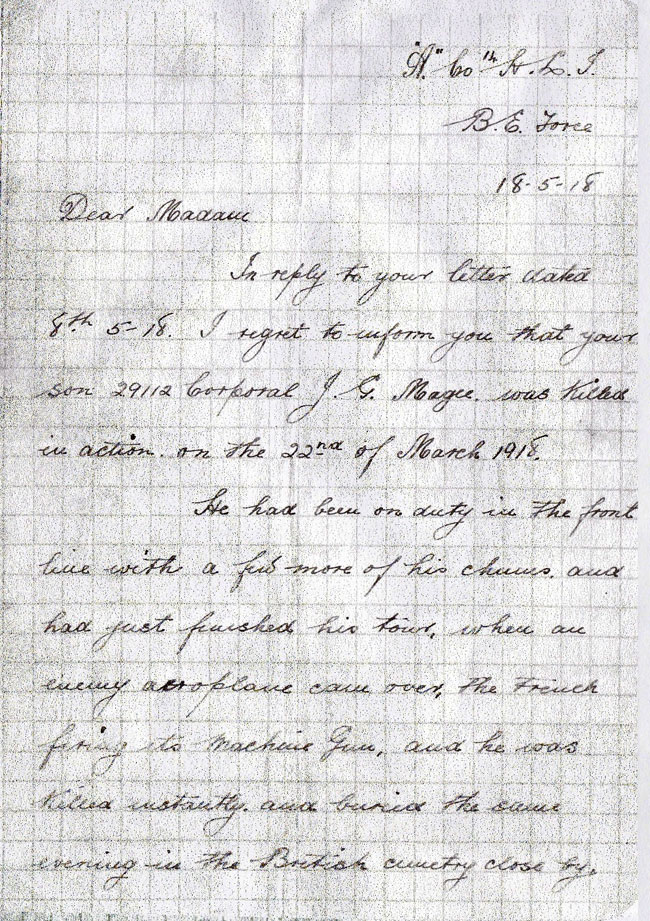 "A." Co H. L. I.
B. E. Force
18-5-18
Dear Madam
In reply to your letter dated
8th 5-18. I regret to inform you that your
son 29112 Corporal J. G. Magee. was Killed
in action. on the 22nd of March 1918.
He had been on duty in the front
line with a few more of his chums. and
had just finished his tour, when an
enemy aeroplane came over, the Trench
firing its Machine Gun, and he was
Killed instantly. and buried the same
evening in the British cemetry close by.